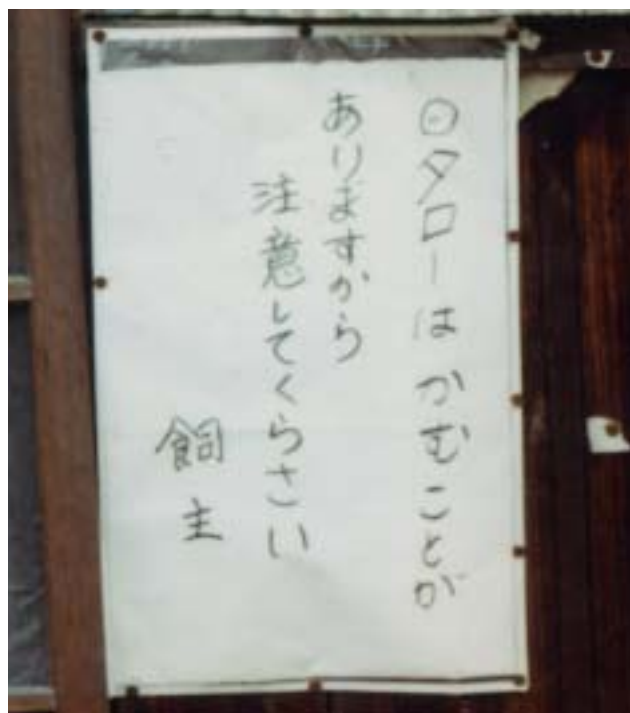 ○タローはかむことが
ありますから
注意してくらさい
飼主